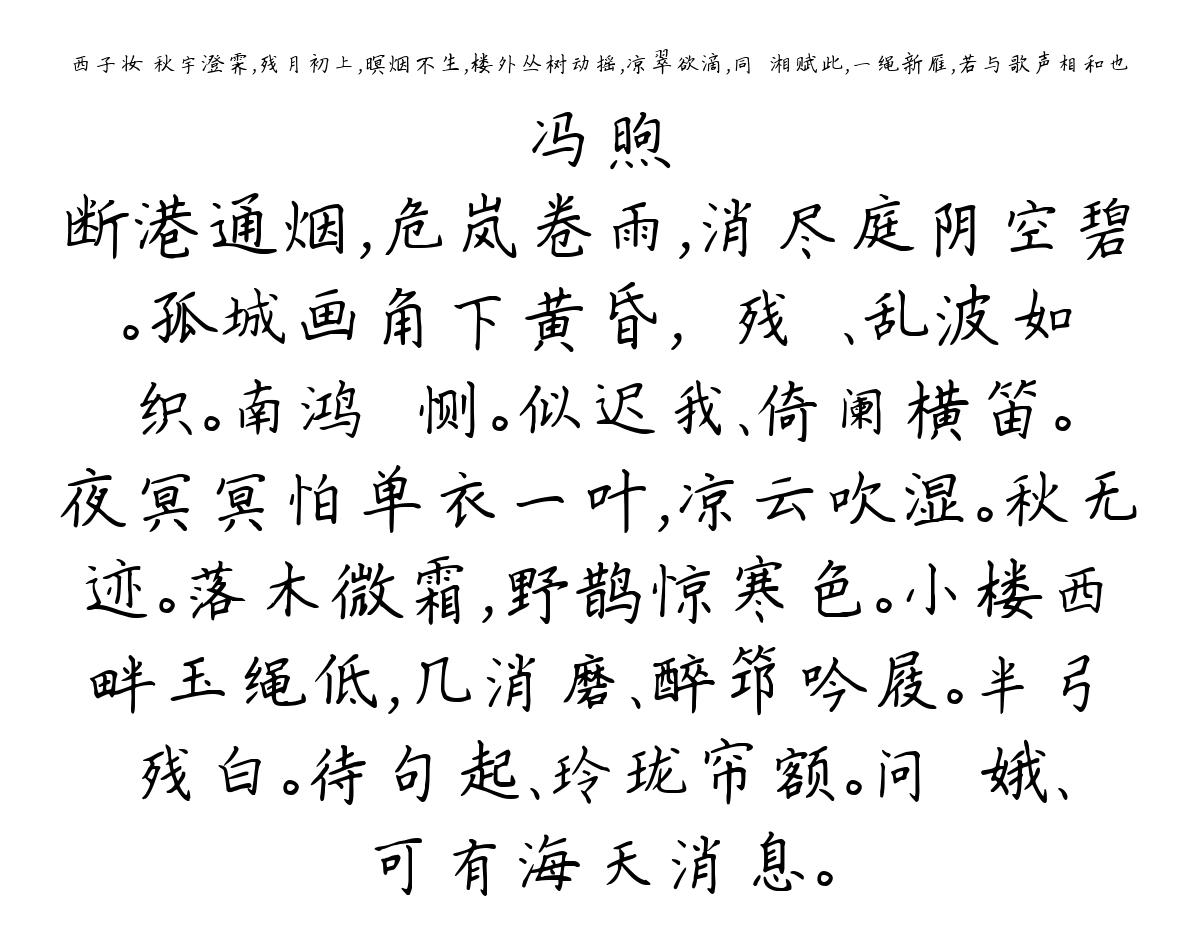 西子妆 秋宇澄霁,残月初上,暝烟不生,楼外丛树动摇,凉翠欲滴,同 湘赋此,一绳新雁,若与歌声相和也
冯煦
断港通烟,危岚卷雨,消尽庭阴空碧
。孤城画角下黄昏, 残 、乱波如
织。南鸿 恻。似迟我、倚阑横笛。
夜冥冥怕单衣一叶,凉云吹湿。秋无
迹。落木微霜,野鹊惊寒色。小楼西
畔玉绳低,几消磨、醉筇吟屐。半弓
残白。待句起、玲珑帘额。问 娥、
可有海天消息。